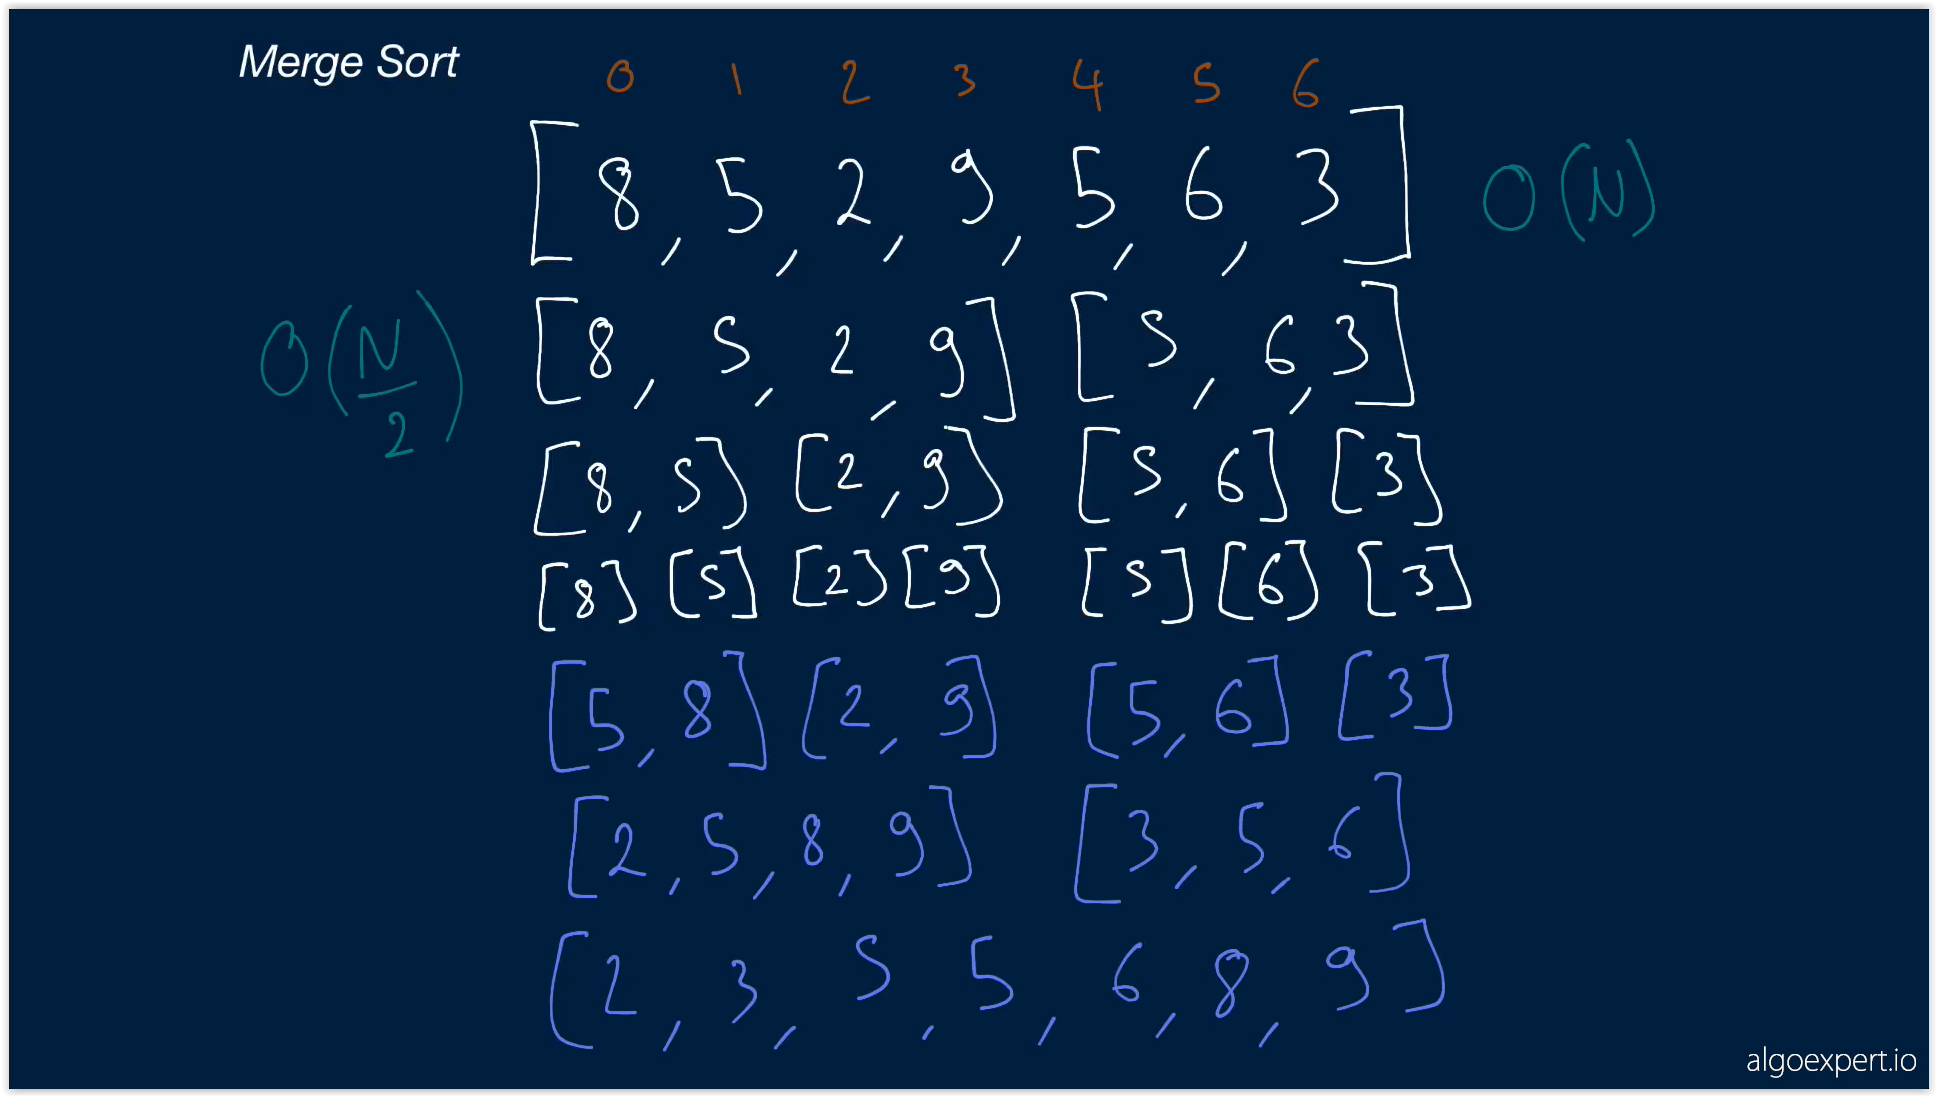 Merge Sort
0 1 2 3 4 5 6
[8, 5, 2, 9, 5, 6, 3] O(N)
O(N/2) [8, 5, 2, 9] [5, 6, 3]
[8, 5] [2, 9] [5, 6] [3]
[8] [5] [2] [9] [5] [6] [3]
[5, 8] [2, 9] [5, 6] [3]
[2, 5, 8, 9] [3, 5, 6]
[2, 3, 5, 5, 6, 8, 9]
algoexpert.io